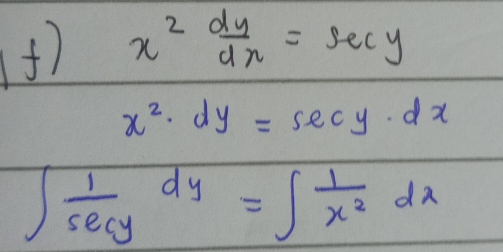 f) x² dy/dx = sec y
x² · dy = sec y · dx
∫ 1/sec y dy = ∫ 1/x² dx